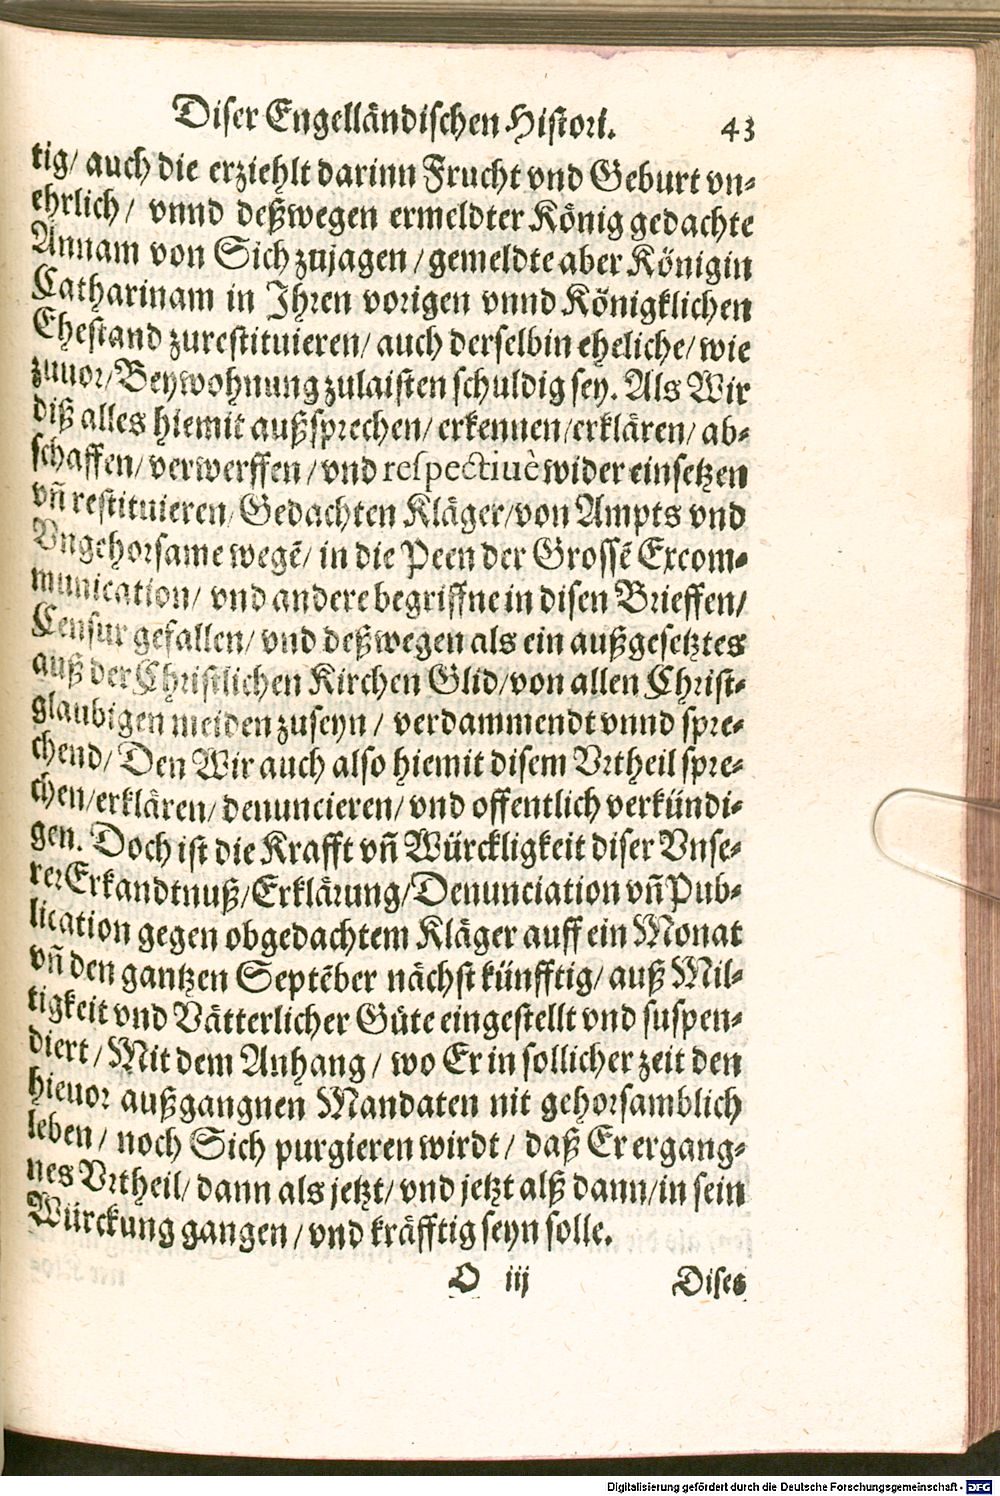 Diser Engelländischen Histori. 43
tig/ auch die erziehlt darinn Frucht vnd Geburt vn-
ehrlich/ vnnd deßwegen ermeldter König gedachte
Annam von Sich zujagen/ gemeldte aber Königin
Catharinam in Ihren vorigen vnnd Königklichen
Ehestand zurestituieren/ auch derselbin eheliche/ wie
zuuor/ Beywohnung zulaisten schuldig sey. Als Wir
diß alles hiemit außsprechen/ erkennen/ erklären/ ab-
schaffen/ verwerffen/ vnd respectiuè wider einsetzen
vñ restituieren/ Gedachten Kläger/ von Ampts vnd
Vngehorsame wegẽ/ in die Peen der Grossẽ Excom-
munication/ vnd andere begriffne in disen Brieffen/
Censur gefallen/ vnd deßwegen als ein außgesetztes
auß der Christlichen Kirchen Glid/ von allen Christ-
glaubigen meiden zuseyn/ verdammendt vnnd spre-
chend/ Den Wir auch also hiemit disem Vrtheil spre-
chen/ erklären/ denuncieren/ vnd offentlich verkündi-
gen. Doch ist die Krafft vñ Würckligkeit diser Vnse-
rer Erkandtnuß/ Erklärung/ Denunciation vñ Pub-
lication gegen obgedachtem Kläger auff ein Monat
vñ den gantzen Septẽber nächst künfftig/ auß Mil-
tigkeit vnd Vätterlicher Güte eingestellt vnd suspen-
diert/ Mit dem Anhang/ wo Er in sollicher zeit den
hieuor außgangnen Mandaten nit gehorsamblich
leben/ noch Sich purgieren wirdt/ daß Er ergang-
nes Vrtheil/ dann als jetzt/ vnd jetzt alß dann/ in sein
Würckung gangen/ vnd kräfftig seyn solle.
O iij Dises
Digitalisierung gefördert durch die Deutsche Forschungsgemeinschaft - DFG